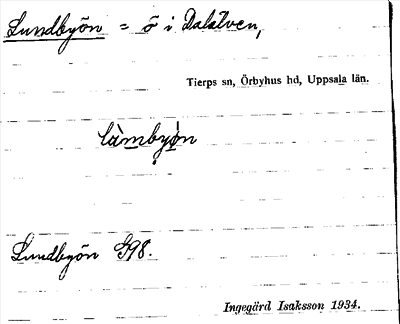 Lundbyön = ö i Dalälven,
Tierps sn, Örbyhus hd, Uppsala län.
làmbyọ̈n
Lundbyön G98.
Ingegärd Isaksson 1934.